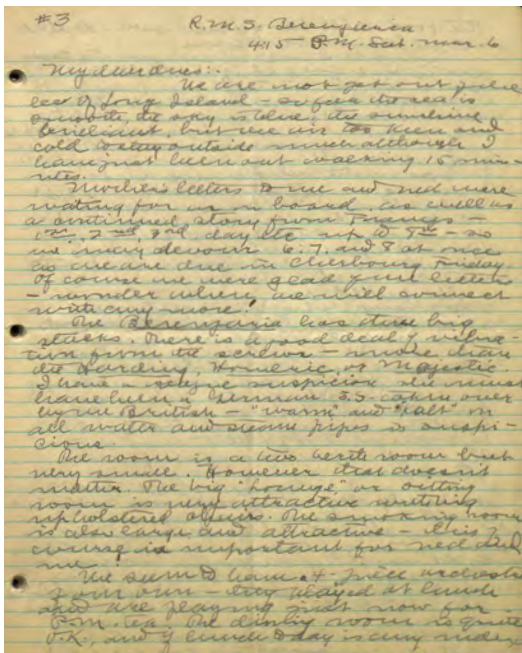 #3
R.M.S. Berengaria
4:15 P.M. Sat. Mar. 6
My dear dears:.
We are not yet out from
lee of Long Island - so far the sea is
smooth, the sky is blue, the sunshine
brilliant, but the air too keen and
cold to stay outside much although I
have just been out walking 15 min-
utes.
Mother's letters to me and Ned were
waiting for us on board, as well as
a continued story from Frances -
1st, 2nd, 3rd, day etc. up to 8th - so
we may devour 6, 7, and 8 at once
as we are due in Cherbourg Friday.
Of course we were glad your letters
- wonder where we will connect
with any more!
The Berengaria has three big
stacks. There is a good deal of vibra-
tion from the screws - more than
the Harding, Homeric, or Majestic.
I have a suspicion she must
have been a German S.S. taken over
by the British - "warm" and "kalt" on
all water and steam pipes is suspi-
cious.
The room is a two berth room but
very small. However that doesn't
matter. The big "lounge" or sitting
room is very attractive with big
upholstered chairs. The smoking room
is also large and attractive - this of
course is important for Ned and
me!
We seem to have a piece orchestra
of our own - they played at lunch
and are playing just now for
P.M. tea. The dining room is quite
O.K., and if lunch today is any index